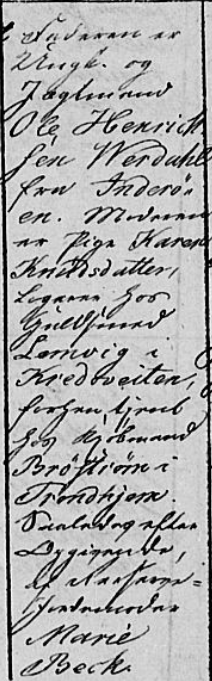 Faderen er
Ungk. og
Jægtmand
Ole Henrich
sen Werdahl
fra Inderö-
en. Moderen
er Pige Karen
Knudsdatter,
logerer hos
Guldsmed
Lemvig i
Kredsveiten,
forhen tjent
hos Kjöbmand
Bröström i
Trondhjem.
Saaledes efter
Opgivende,
af
Jordemoder
Marie
Beck.